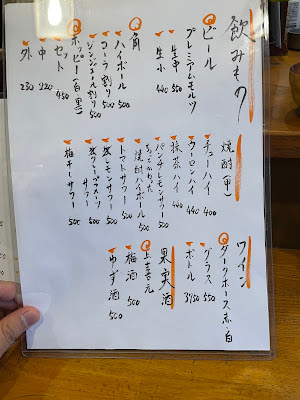 飲みもの
ビール
プレミアムモルツ
生中 550
生小 440
角
ハイボール 500
コーラ割り 500
ジンジャエール割り 500
ホッピー(白・黒)
セット 450
中 220
外 250
焼酎(甲)
チューハイ 400
ウーロンハイ 440
抹茶ハイ 440
パンチレモンサワー 500
焼酎ハイボール 500
トマトサワー 500
レモンサワー 500
サワー 500
梅干サワー 500
ワイン
ダークホース 赤・白
グラス 550
ボトル 3750
果実酒
上喜元
梅酒 500
ゆず酒 500